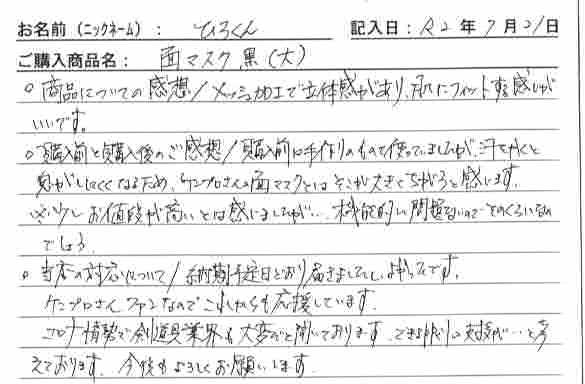 お名前（ニックネーム）： ひろくん 記入日：R2年7月21日
ご購入商品名： 面マスク 黒(大)
○商品についての感想/メッシュ加工で立体感があり、肌にフィットする感じが
いいです。
○購入前と購入後のご感想/購入前は手作りのものを使っていましたが、汗をかくと
息がしにくくなるため、ケンプロさんの面マスクとはそこが大きくちがうと感じます。
少しお値段が高いとは感じましたが…機能的に問題ないのでそのくらいなの
でしょう。
○当本の対応について/納期予定日どおり届きましたし、よかったです。
ケンプロさんファンなのでこれからも応援しています。
コロナ情勢で剣道具業界も大変だと聞いております。できるかぎりの支援が…と考
えております。今後もよろしくお願いします。